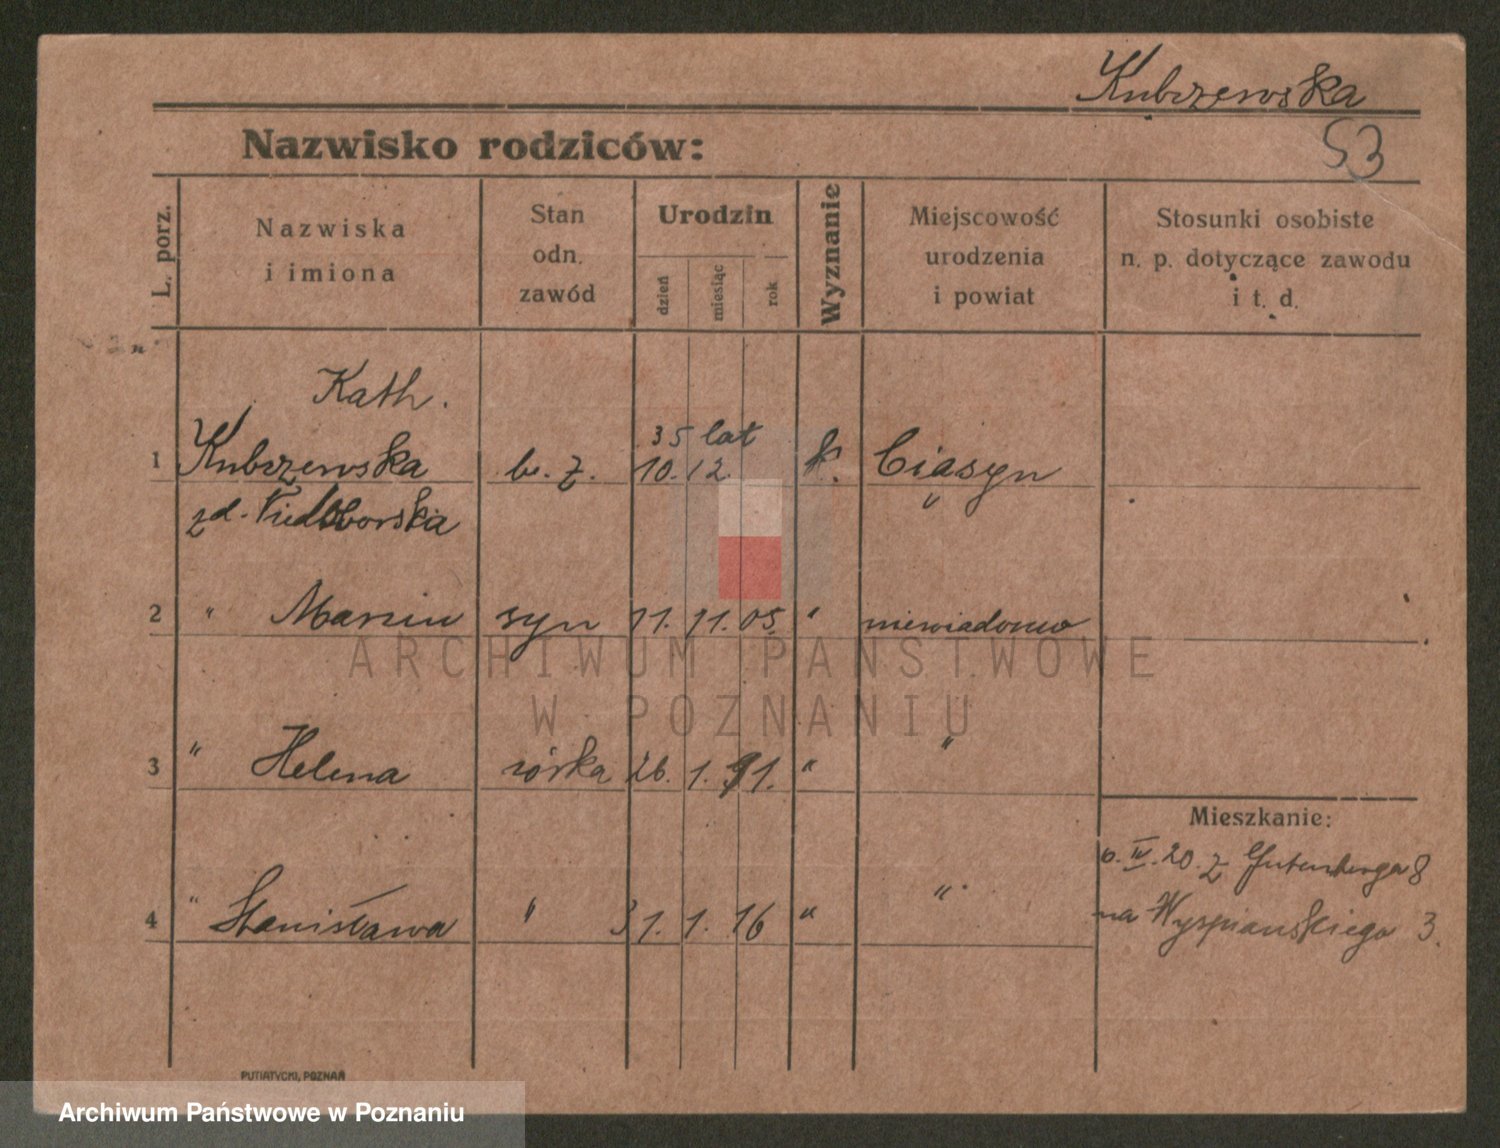 Kubszewska
53
Nazwisko rodziców:
L. porz.
Nazwiska
i imiona
Stan
odn.
zawód
Urodzin
dzień
miesiąc
rok
Wyznanie
Miejscowość
urodzenia
i powiat
Stosunki osobiste
n. p. dotyczące zawodu
i t. d.
Kath.
35 lat
1 Kubszewska 10. 12. k.
2 " Marcin syn 11. 11. 05. " niewiadomo
3 " Helena córka 26. 1. 91. " "
Mieszkanie:
IV. 20. z Gutenberga 8
4 " Stanisława " 31. 1. 16 " "
na Wyspiańskiego 3.
ARCHIWUM PAŃSTWOWE
W POZNANIU
PUTIATYCKI, POZNAŃ
Archiwum Państwowe w Poznaniu